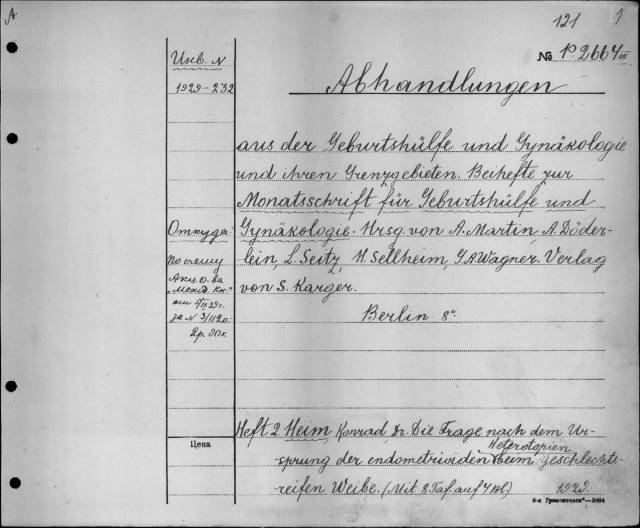 A
121 1
№ P.2664 III
Инв. N
1929-232
Abhandlungen
aus der Geburtshülfe und Gynäkologie
und ihren Grenzgebieten. Beihefte zur
Monatsschrift für Geburtshülfe und
Gynäkologie. Hrsg. von A. Martin, A. Döder-
lein, L. Seitz, H. Sellheim, G.A. Wagner. Verlag
von S. Karger.
Berlin 8°
Откуда:
по счету
Акц. о-ва
„Межд. Кн."
2р. 90к
Heft 2 Heim, Konrad, Dr. Die Frage nach dem Ur-
sprung der endometrioiden Heterotopien beim geschlechts-
reifen Weibe. (Mit 8 Taf. auf 4 Bl.) 1929.
Цена